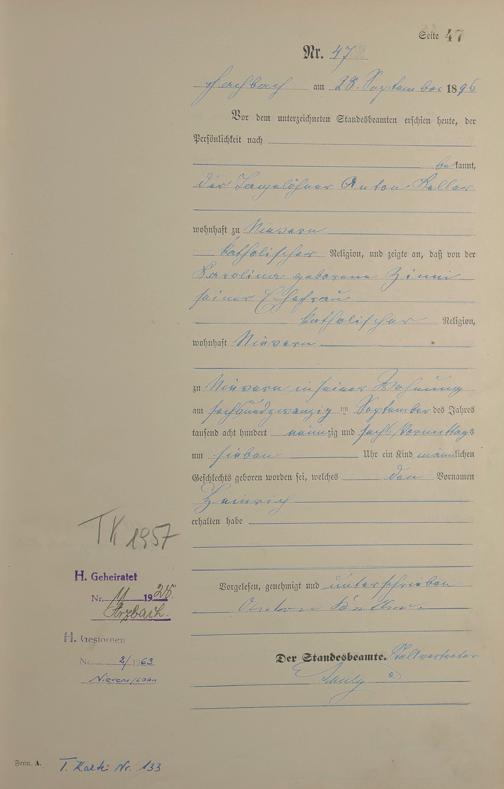 Seite 47
Nr. 47
Fachbach am 28. September 1896
Vor dem unterzeichneten Standesbeamten erschien heute, der
Persönlichkeit nach
bekannt,
der Tagelöhner Anton
wohnhaft zu Nievern
katholischer Religion, und zeigte an, daß von der
Karolina geborene Zinni
seiner Ehefrau
katholischer Religion,
wohnhaft Nievern
zu Nievern in seiner Wohnung
am sechsundzwanzig ten September des Jahres
tausend acht hundert neunzig und sechs Vormittags
um sieben Uhr ein Kind männlichen
Geschlechts geboren worden sei, welches den Vornamen
Heinrich
erhalten habe
Vorgelesen, genehmigt und unterschrieben
Anton
Der Standesbeamte. Stellvertreter
Pauly
TK 1957
H. Geheiratet
Nr. 11 1925
Arzbach.
H. Gestorben
Nr. 2/1963
Nievern/Lahn
Form. A.
T. Kartei Nr. 133